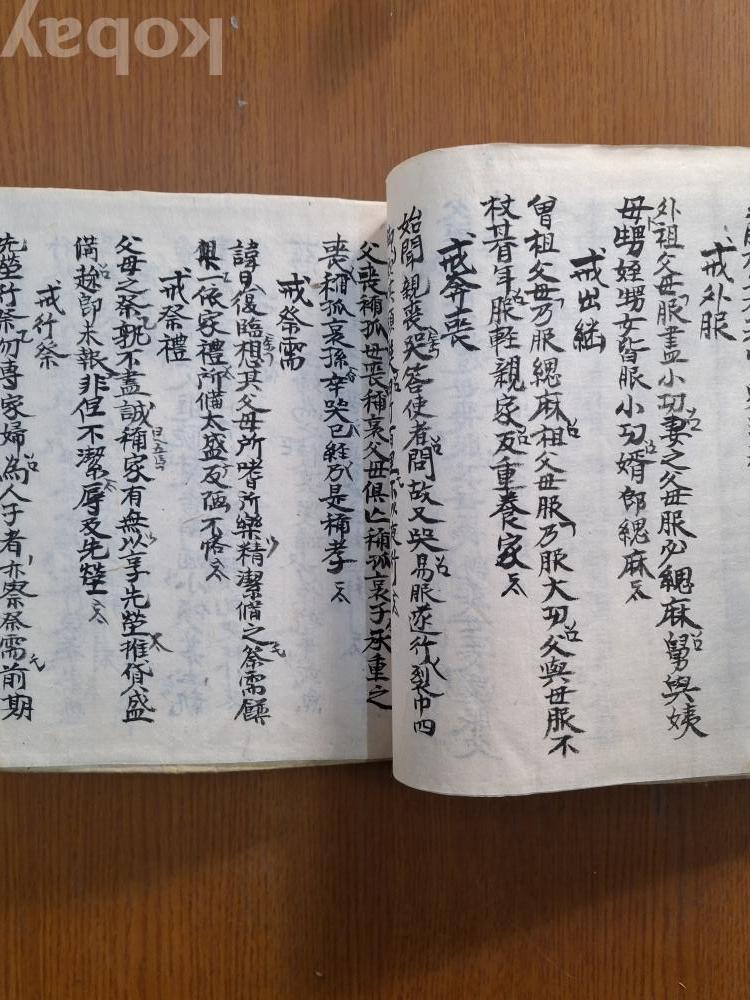 戒外服
外祖父母服盡小功妻之父母服必緦麻舅與姨
母甥姪甥女皆服小功婿郎緦麻
戒出継
曾祖父母乃服緦麻祖父母服乃服大功父與母服不
杖朞年服軽親家反重養家
戒奔喪
始聞親喪哭答使者問故又哭易服遂行裂巾四
父喪稱孤母喪稱哀父母俱亡稱孤哀子承重之
喪稱孤哀孫卒哭已経乃是稱孝
戒祭需
諱日復臨想其父母所嗜所樂精潔備之祭需饌
依家禮所備太盛反陋不恪
戒祭禮
父母之祭孰不盡誠稱家有無以享先塋推貸盛
備趂即未報非但不潔辱及先塋
戒行祭
先塋行祭勿專家婦為人子者亦察祭需前期
kobay